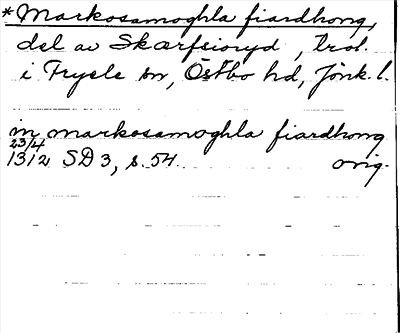 *Markosamoghla fiardhong,
del av Skærfsioryd, trol.
i Fryele sn, Östbo hd, Jönk. l.
in markosamoghla fiardhong
23/4
1312 SD 3, s. 54. orig.